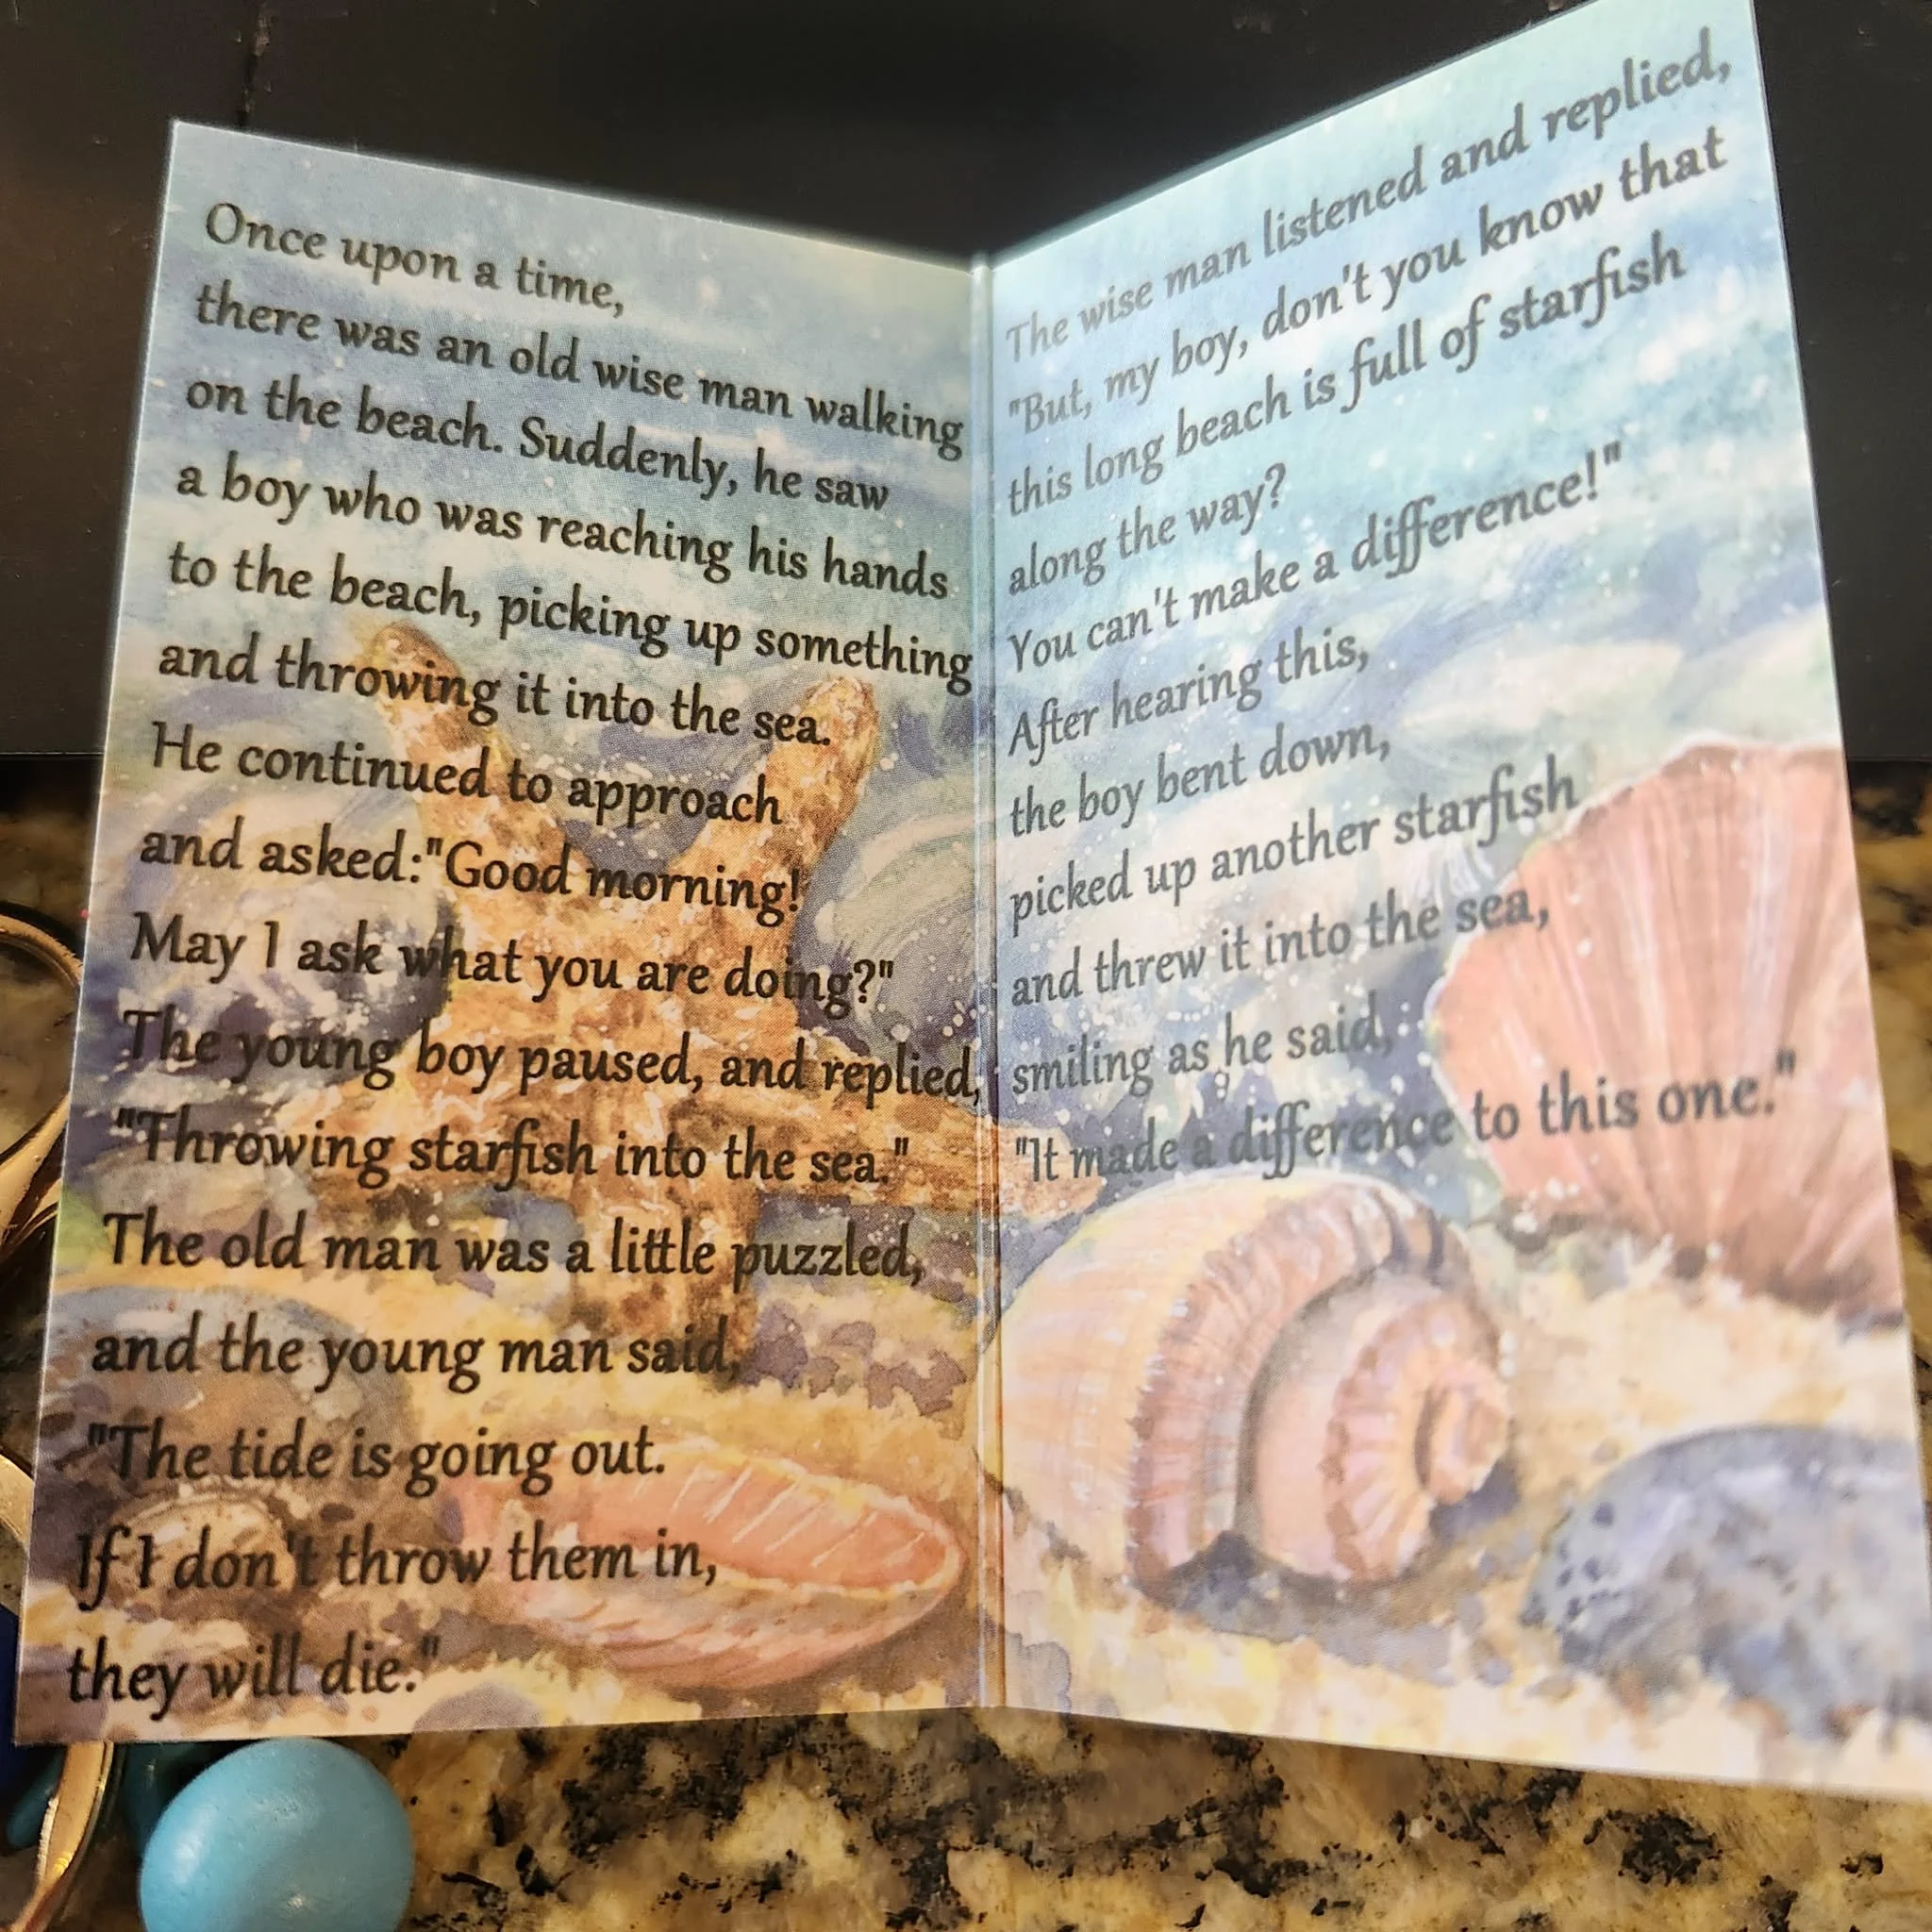 Once upon a time,
there was an old wise man walking
on the beach. Suddenly, he saw
a boy who was reaching his hands
to the beach, picking up something
and throwing it into the sea.
He continued to approach
and asked:"Good morning!
May I ask what you are doing?"
The young boy paused, and replied,
"Throwing starfish into the sea."
The old man was a little puzzled,
and the young man said,
"The tide is going out.
If I don't throw them in,
they will die."
The wise man listened and replied,
"But, my boy, don't you know that
this long beach is full of starfish
along the way?
You can't make a difference!"
After hearing this,
the boy bent down,
picked up another starfish
and threw it into the sea,
smiling as he said,
"It made a difference to this one."